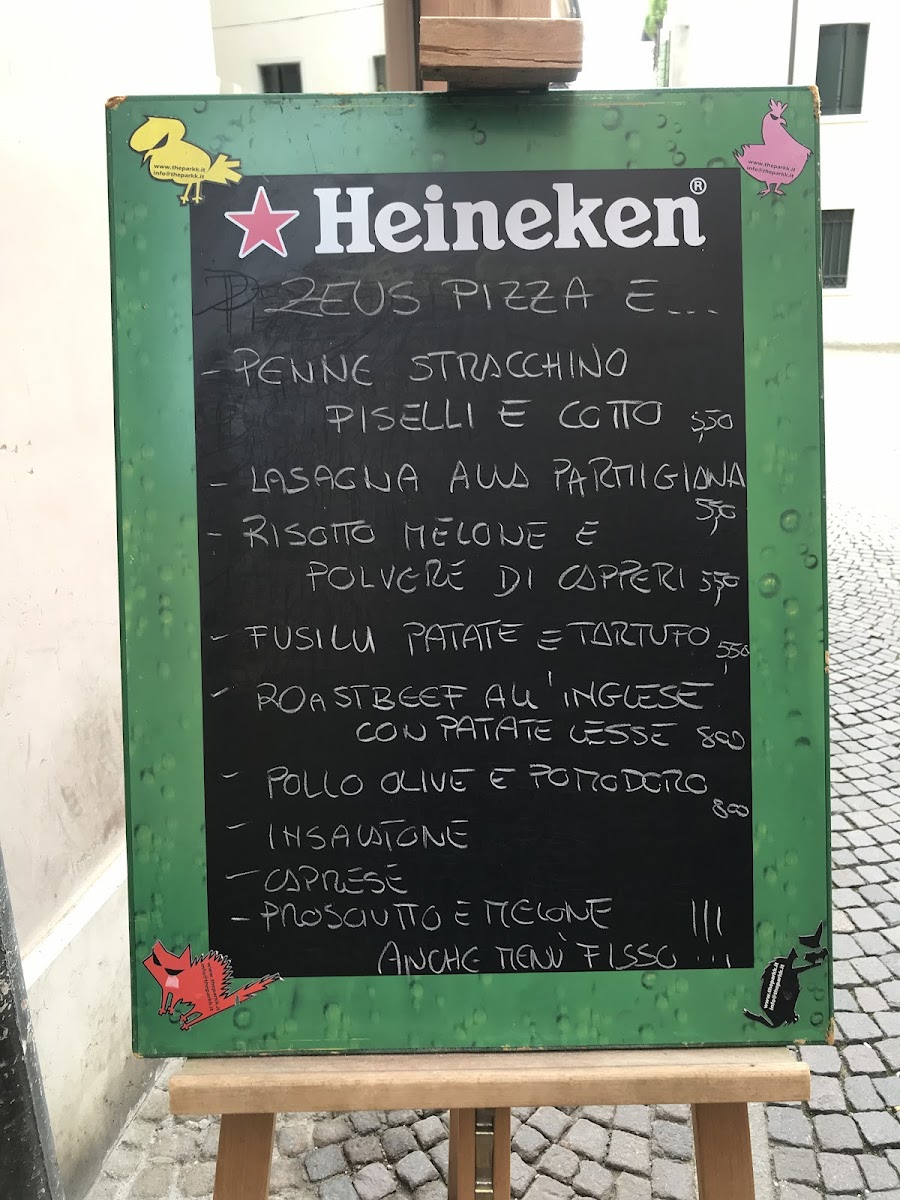 www.theparkk.it
info@theparkk.it
www.theparkk.it
info@theparkk.it
Heineken®
ZEUS PIZZA E...
- PENNE STRACCHINO
PISELLI E COTTO 5,50
- LASAGNA ALLA PARMIGIANA
5,50
- RISOTTO MELONE E
POLVERE DI CAPPERI 5,50
- FUSILLI PATATE E TARTUFO 5,50
- ROASTBEEF ALL'INGLESE
CON PATATE LESSE 8,00
- POLLO OLIVE E POMODORO
8,00
- INSALATONE
- CAPRESE
- PROSCIUTTO E MELONE
ANCHE MENÙ FISSO !!!
www.theparkk.it
info@theparkk.it
www.theparkk.it
info@theparkk.it